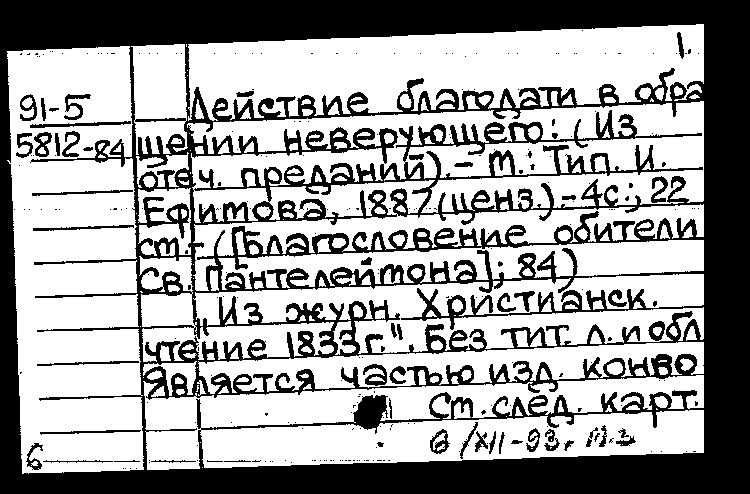 1.
91-5
5812-84
Действие благодати в обра
щении неверующего: (Из
отеч. преданий). - М.: Тип. И.
Ефимова, 1887 (ценз.). - 4с.; 22
см. - ([Благословение обители
Св. Пантелеймона]; 84)
„Из журн. Христианск.
чтение 1833г.". Без тит. л. и обл
Является частью изд. конво
См. след. карт.
В/XII-93г.
6